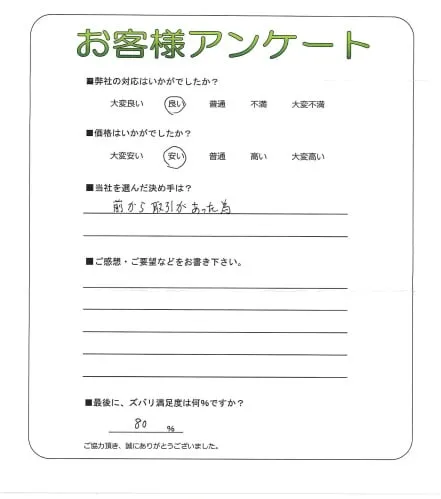 お客様アンケート
■弊社の対応はいかがでしたか?
大変良い 良い 普通 不満 大変不満
■価格はいかがでしたか?
大変安い 安い 普通 高い 大変高い
■当社を選んだ決め手は?
前から取引があった為
■ご感想・ご要望などをお書き下さい。
■最後に、ズバリ満足度は何%ですか?
80 %
ご協力頂き、誠にありがとうございました。